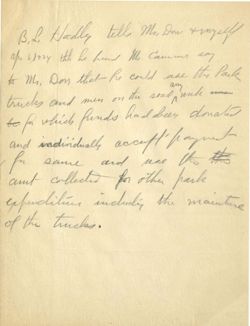 B.L. Hadly tells Mr Dorr & myself
apr 21/27 tht he heard Mr Cammerer say
to Mr. Dorr that he could use the Park
trucks and men on the road any work
to for which funds had been donated
and individually accept payment
for same and use the
amt collected for other park
expenditures including the maintence
of the trucks.